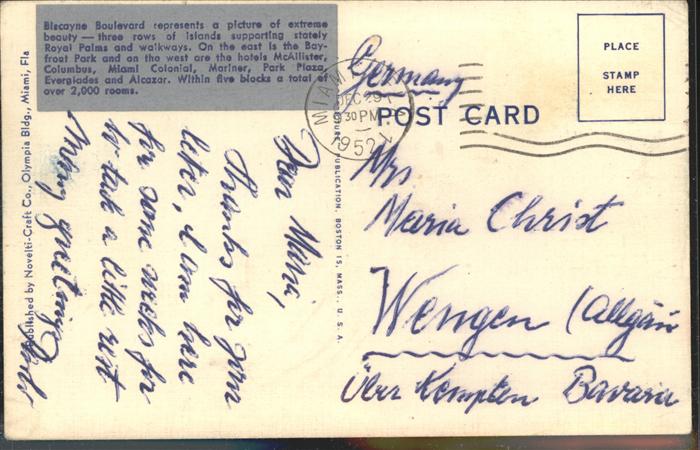 Biscayne Boulevard represents a picture of extreme
beauty — three rows of islands supporting stately
Royal Palms and walkways. On the east is the Bay-
front Park and on the west are the hotels McAllister,
Columbus, Miami Colonial, Mariner, Park Plaza,
Everglades and Alcazar. Within five blocks a total of
over 2,000 rooms.
Published by Novelti-Craft Co., Olympia Bldg., Miami, Fla
Dear Mari,
thanks for your
letter, I am here
for some weeks for
to take a little rest
Many greetings
PUBLICATION, BOSTON 15, MASS., U. S. A.
MIAMI
DEC 29
30 PM
1952
PLACE
STAMP
HERE
POST CARD
Germany
Mrs
Maria Christ
Wengen (Allgäu
Über Kempten Bavaria